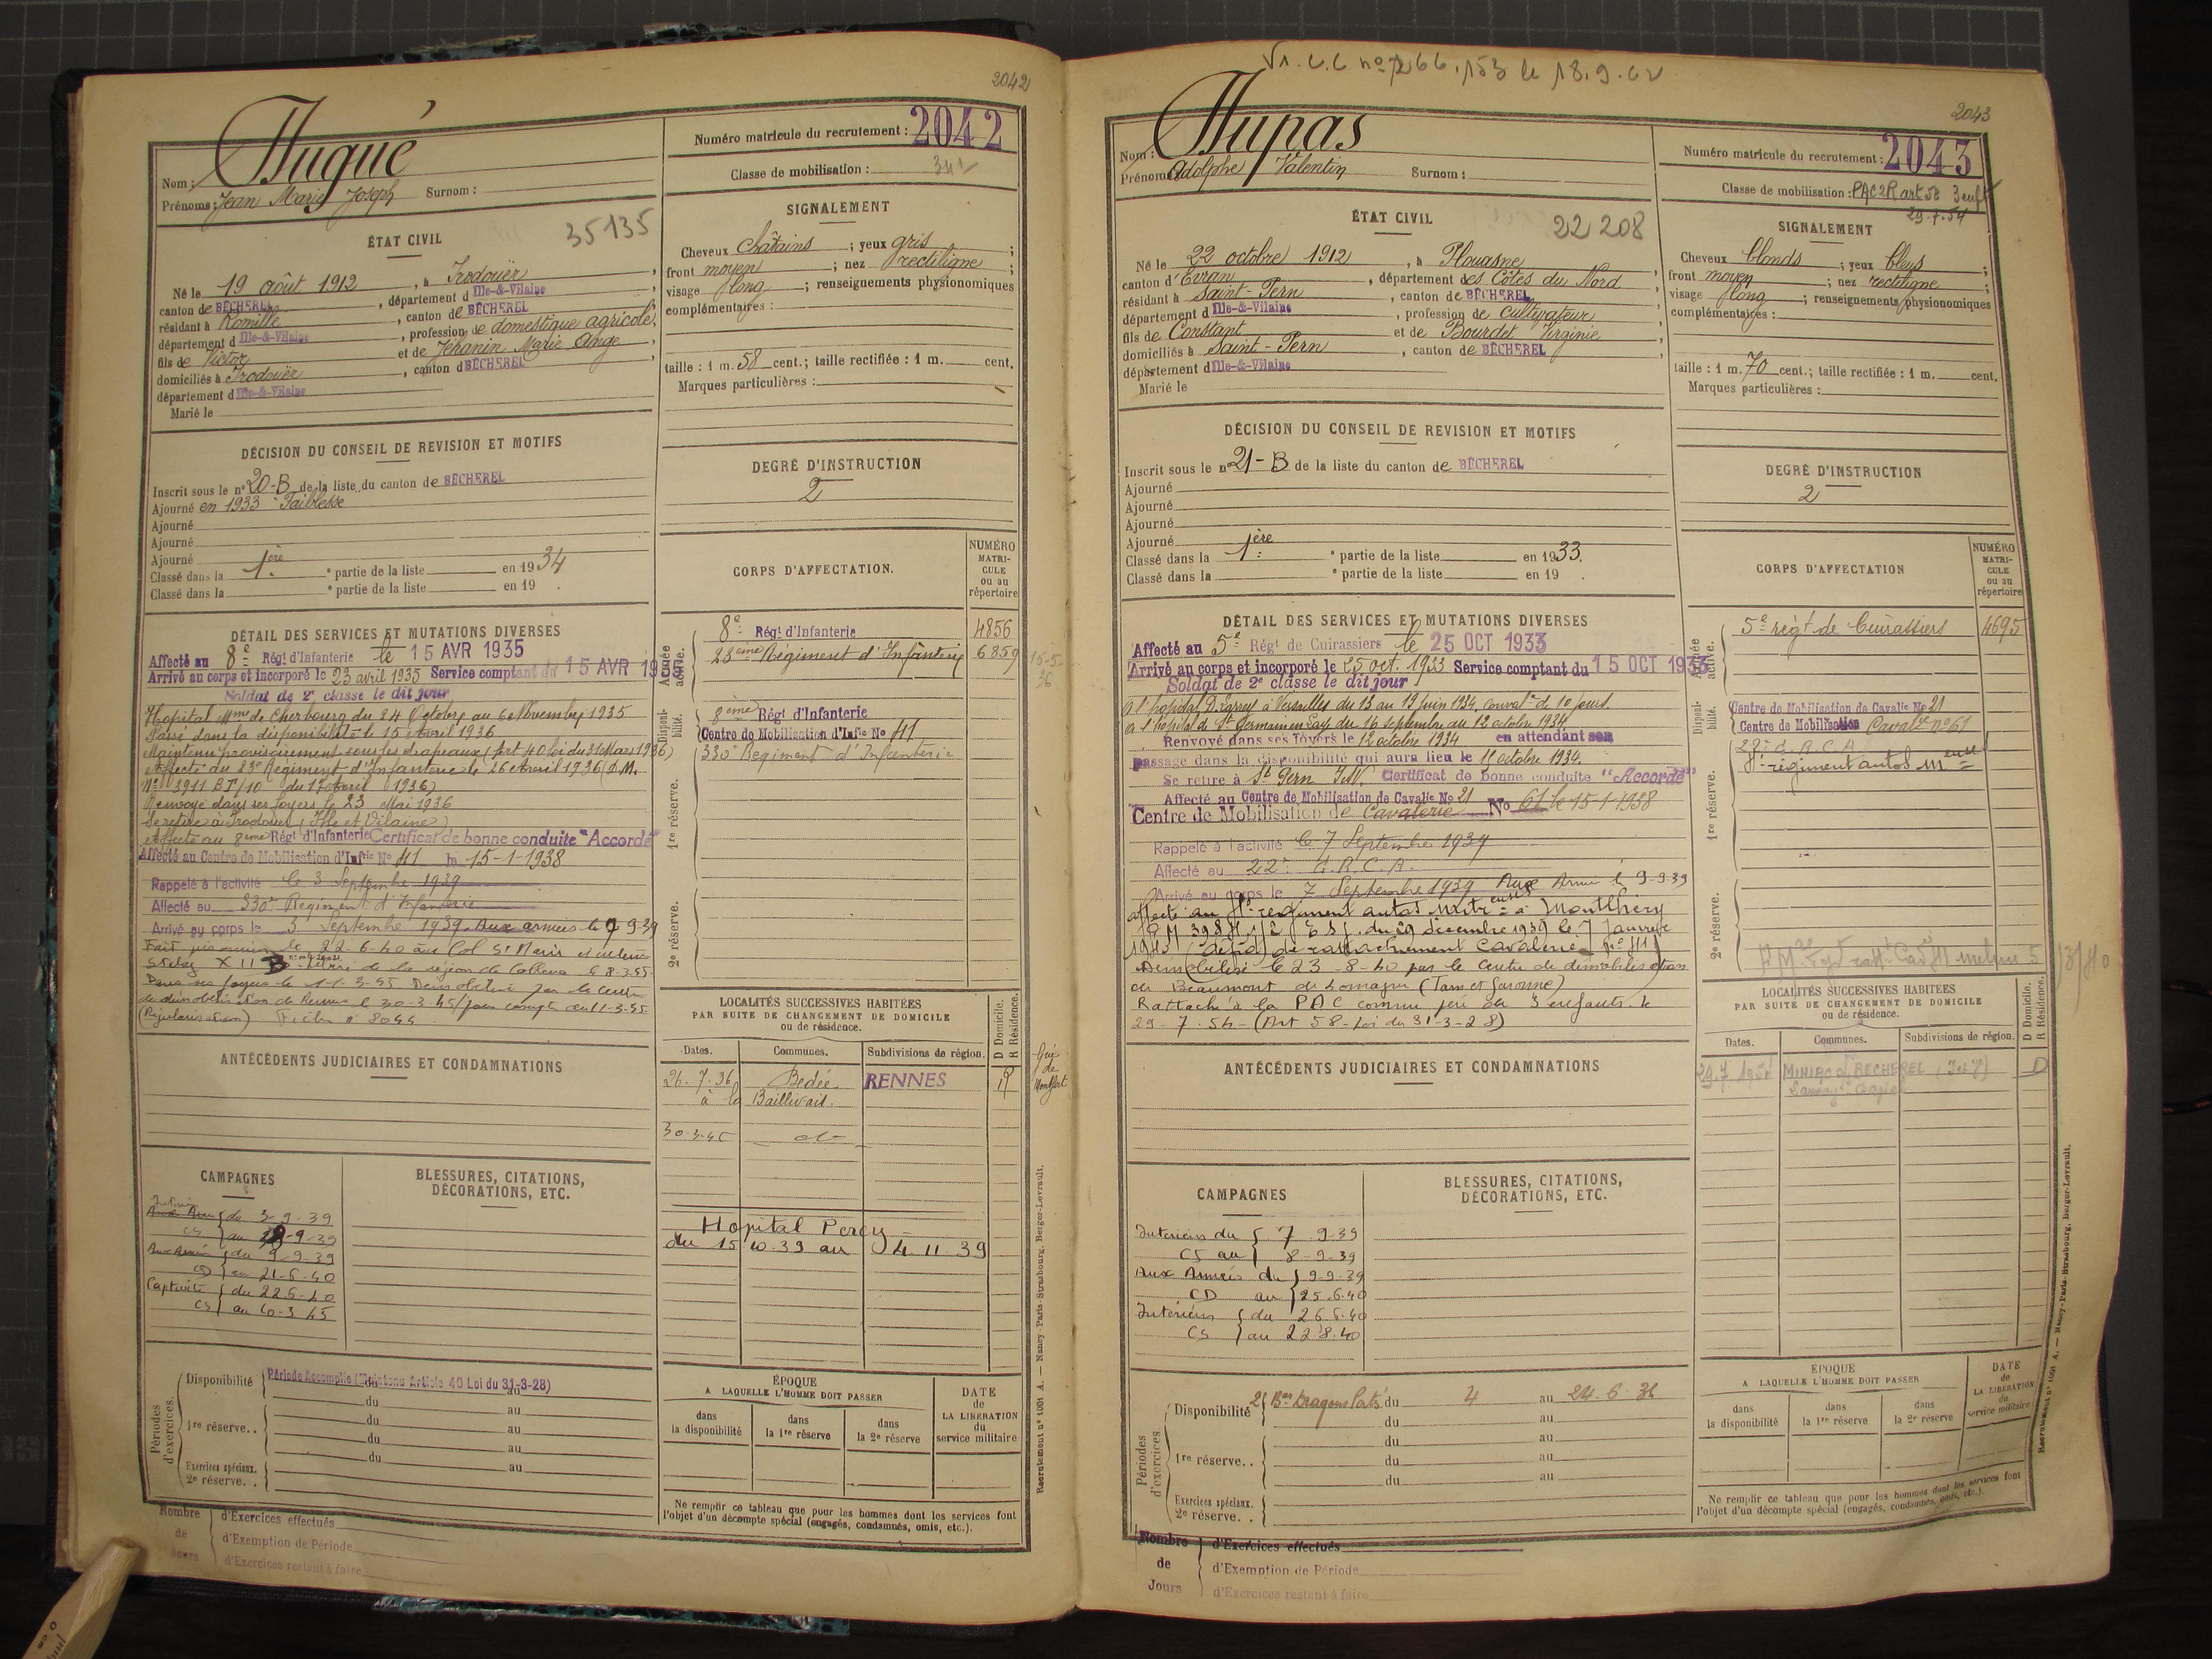 2042
Nom : Hugué
Prénoms : Jean Marie Joseph Surnom :
Numéro matricule du recrutement : 2042
Classe de mobilisation :
ÉTAT CIVIL
35135
Né le 19 août 1912, à Irodouër,
canton de BÉCHEREL, département d Ille-&-Vilaine
résidant à Romillé, canton de BÉCHEREL
département d Ille-&-Vilaine, profession de domestique agricole,
fils de Victor et de Jehanin Marie Ange
domiciliés à Irodouër, canton d BÉCHEREL
département d Ille-&-Vilaine
Marié le
SIGNALEMENT
Cheveux châtains ; yeux gris ;
front moyen ; nez rectiligne ;
visage long ; renseignements physionomiques
complémentaires :
taille : 1 m. 58 cent.; taille rectifiée : 1 m. cent.
Marques particulières :
DÉCISION DU CONSEIL DE REVISION ET MOTIFS
Inscrit sous le n° 20-B de la liste du canton de BÉCHEREL
Ajourné en 1933 Faiblesse
Ajourné
Ajourné
Ajourné
Classé dans la 1ère partie de la liste en 1934
Classé dans la partie de la liste en 19 .
DEGRÉ D'INSTRUCTION
2
DÉTAIL DES SERVICES ET MUTATIONS DIVERSES
Affecté au 8e Régt d'Infanterie le 15 AVR 1935
Arrivé au corps et incorporé le 23 avril 1935 Service comptant du 15 AVR 19
Soldat de 2e classe le dit jour
Hopital Mme de Cherbourg du 24 Octobre au 6 Novembre 1935
Passé dans la disponibilité le 15 Avril 1936
Maintenu provisoirement sous les drapeaux (art 40 loi du 31 Mars 1936)
Affecté au 23e Régiment d'Infanterie le 26 Avril 1936 (D.M.
N° 3911 BT/10 du 17 Avril 1936)
Renvoyé dans ses foyers le 23 Mai 1936
Se retire à Irodouer (Ille et Vilaine)
Affecté au 8ème Régt d'Infanterie Certificat de bonne conduite "Accordé"
Affecté au Centre de Mobilisation d'Infrie No 41 le 15-1-1938
Rappelé à l'activité le 3 Septembre 1939
Affecté au 330e Régiment d'Infanterie
Arrivé au corps le 3 Septembre 1939 Aux armées le 9 9-39
Fait prisonnier le 22-6-40 au Col Ste Marie et interné
Stalag XII B
de démobilisation de Rennes le 30-3-45 pour compter du 11-3-45
(Régularisation) Fiche n° 8044
CORPS D'AFFECTATION.
NUMÉRO MATRICULE ou au répertoire
Armée active.
8e Régt d'Infanterie 4856
23ème Régiment d'Infanterie 6859
15-5-36
Disponibilité.
8ème Régt d'Infanterie
Centre de Mobilisation d'Infie No 41
330e Régiment d'Infanterie
1re réserve.
2e réserve.
ANTÉCÉDENTS JUDICIAIRES ET CONDAMNATIONS
LOCALITÉS SUCCESSIVES HABITÉES
PAR SUITE DE CHANGEMENT DE DOMICILE
ou de résidence.
D Domicile. R Résidence.
Dates. Communes. Subdivisions de région.
26.7.36 Bédée RENNES R
à la Baillivais.
30-3-45
Hopital Percy
du 15 10 39 au 4 11 39
CAMPAGNES
Intérieur
Aux Armées du 3-9-39
CS au 8-9-39
Aux Armées du 9-9-39
CD au 21-6-40
Captivité du 22 6-40
CS au 10-3 45
BLESSURES, CITATIONS,
DÉCORATIONS, ETC.
Périodes d'exercices.
Disponibilité Période Accomplie (Maintenu Article 40 Loi du 31-3-28)
du au
1re réserve. . du au
du au
Exercices spéciaux. du au
2e réserve. .
ÉPOQUE
A LAQUELLE L'HOMME DOIT PASSER
dans la disponibilité
dans la 1re réserve
dans la 2e réserve
DATE DE LA LIBERATION du service militaire
Ne remplir ce tableau que pour les hommes dont les services font
l'objet d'un décompte spécial (engagés, condamnés, omis, etc.).
Nombre de Jours
d'Exercices effectués
d'Exemption de Période
d'Exercices restant à faire
Recrutement n° 1001 A. — Nancy-Paris-Strasbourg, Berger-Levrault.
2043
Nom : Hupas
Prénoms Adolphe Valentin Surnom :
Numéro matricule du recrutement : 2043
Classe de mobilisation : PAC 2R art 58 3 enfts
29.7.54
ÉTAT CIVIL
22 208
Né le 22 octobre 1912, à Plouasne,
canton d'Evran, département des Côtes du Nord
résidant à Saint-Pern, canton de BÉCHEREL
département d Ille-&-Vilaine, profession de cultivateur
fils de Constant et de Bourdet Virginie
domiciliés à Saint-Pern, canton de BÉCHEREL
département d Ille-&-Vilaine
Marié le
SIGNALEMENT
Cheveux blonds ; yeux bleus ;
front moyen ; nez rectiligne ;
visage long ; renseignements physionomiques
complémentaires :
taille : 1 m. 70 cent.; taille rectifiée : 1 m. cent.
Marques particulières :
DÉCISION DU CONSEIL DE REVISION ET MOTIFS
Inscrit sous le n° 21-B de la liste du canton de BÉCHEREL
Ajourné
Ajourné
Ajourné
Ajourné
Classé dans la 1ère partie de la liste en 1933.
Classé dans la partie de la liste en 19 .
DEGRÉ D'INSTRUCTION
2
DÉTAIL DES SERVICES ET MUTATIONS DIVERSES
Affecté au 5e Régt de Cuirassiers le 25 OCT 1933
Arrivé au corps et incorporé le 25 oct. 1933 Service comptant du 15 OCT 1933
Soldat de 2e classe le dit jour
à l'hopital D. Larrey à Versailles du 13 au 19 juin 1934, conval. de 10 jours.
à l'hopital de St Germain en Laye du 16 septembre au 12 octobre 1934
Renvoyé dans ses foyers le 12 octobre 1934 en attendant son
passage dans la disponibilité qui aura lieu le 15 octobre 1934.
Se retire à St Pern I&V. Certificat de bonne conduite "Accordé"
Affecté au Centre de Mobilisation de Cavalie No 21
Centre de Mobilisation de Cavalerie No 61 le 15-1-1938
Rappelé à l'activité le 7 Septembre 1939
Affecté au 22e G.R.C.A.
Arrivé au corps le 7 Septembre 1939 Aux Armées le 9-9-39
Démobilisé le 23-8-40 par le Centre de démobilisation
de Beaumont de Lomagne (Tarn et Garonne)
Rattaché à la PAC comme père de 3 enfants le
29-7-54 (Art 58 - Loi du 31-3-28)
CORPS D'AFFECTATION
NUMÉRO MATRICULE ou au répertoire
Armée active.
5e régt de Cuirassiers 4695
Disponibilité.
Centre de Mobilisation de Cavalie No 21
Centre de Mobilisation Cavalie n° 61
1re réserve.
22e G.R.C.A.
2e réserve.
ANTÉCÉDENTS JUDICIAIRES ET CONDAMNATIONS
LOCALITÉS SUCCESSIVES HABITÉES
PAR SUITE DE CHANGEMENT DE DOMICILE
ou de résidence.
D Domicile. R Résidence.
Dates. Communes. Subdivisions de région.
29.7.1954 MINIAC s/ BECHEREL (I et V) D
CAMPAGNES
Intérieur du 7 9-39
CS au 8-9-39
Aux Armées du 9-9-39
CD au 25-6-40
Intérieur du 26-6-40
CS au 22-8-40
BLESSURES, CITATIONS,
DÉCORATIONS, ETC.
Périodes d'exercices.
Disponibilité 2e Bon Dragons Portés du 4 au 24.6.36
du au
1re réserve. . du au
du au
du au
Exercices spéciaux.
2e réserve. .
ÉPOQUE
A LAQUELLE L'HOMME DOIT PASSER
dans la disponibilité
dans la 1re réserve
dans la 2e réserve
DATE DE LA LIBERATION du service militaire
Ne remplir ce tableau que pour les hommes dont les services font
l'objet d'un décompte spécial (engagés, condamnés, omis, etc.).
Nombre de Jours
d'Exercices effectués
d'Exemption de Période
d'Exercices restant à faire
Recrutement n° 1001 A. — Nancy-Paris-Strasbourg, Berger-Levrault.